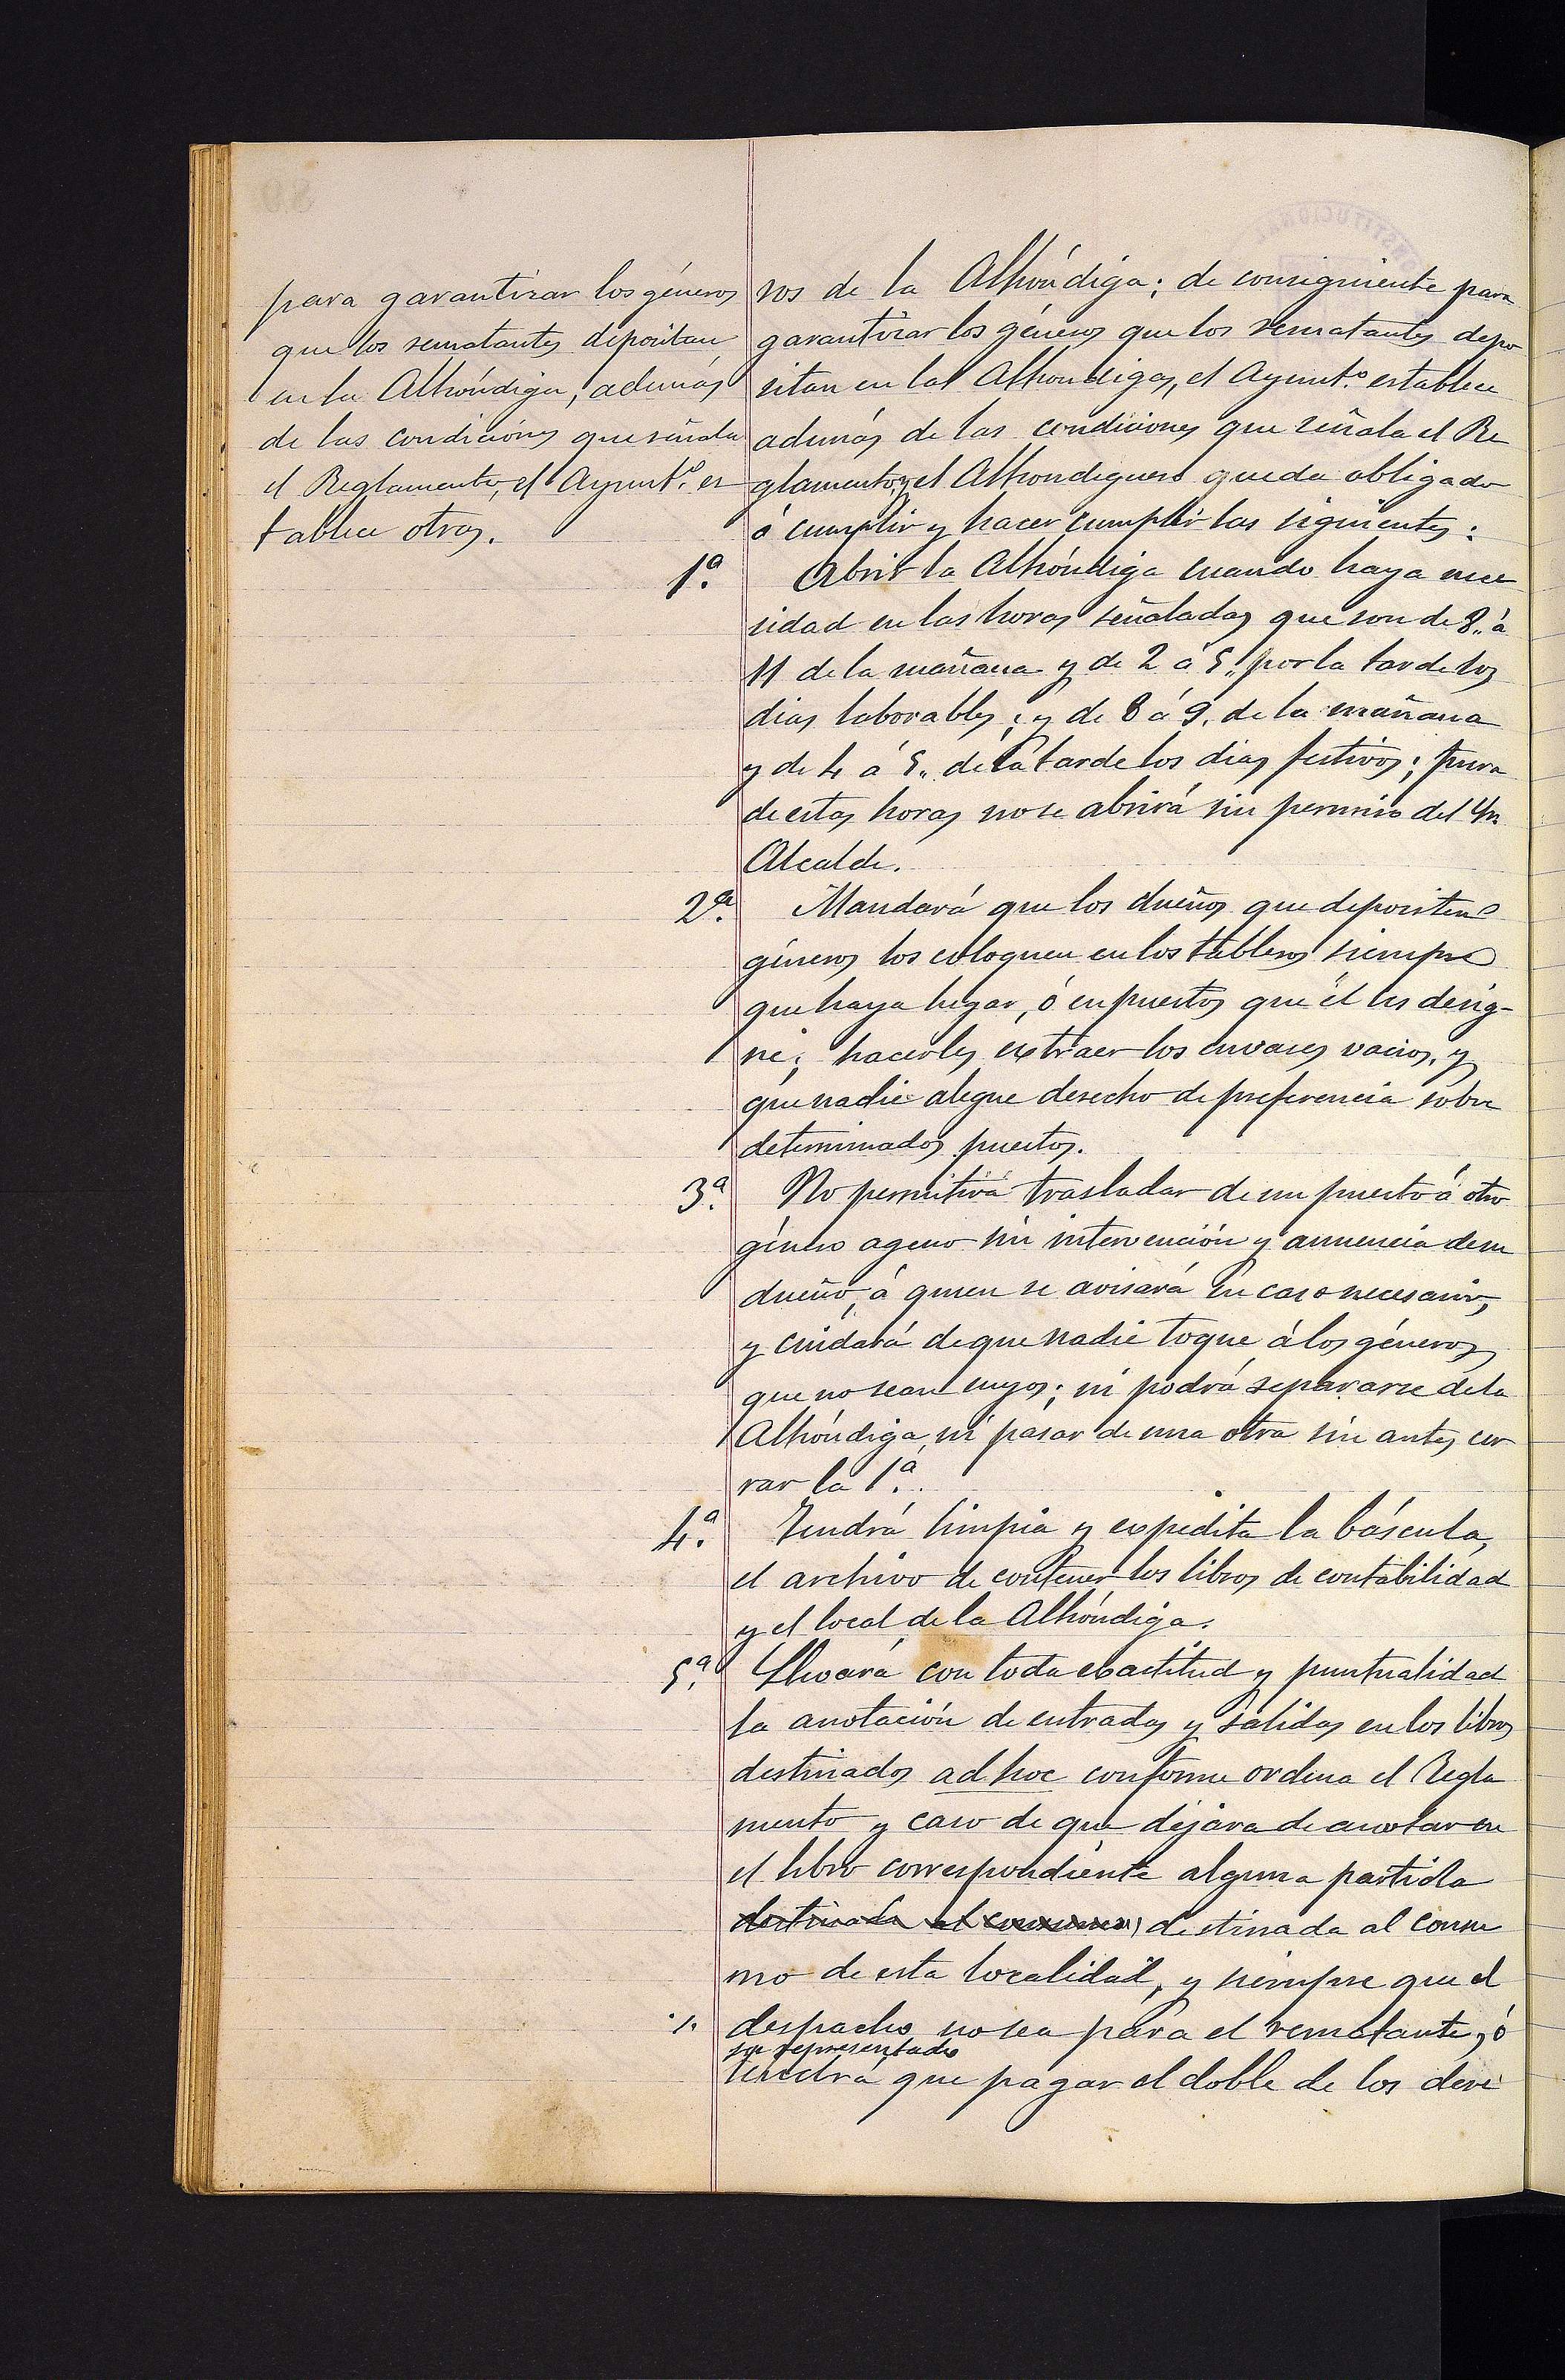 para garantizar los géneros
que los rematantes depositan
en la Alhóndiga, además
de las condiciones que señala
el Reglamento, el Ayunt.º es
tablece otras.
ros de la Alhóndiga; de consiguiente para
garantizar los géneros que los rematantes depo
sitan en las Alhondigas, el Ayunt.º establece
además de las condiciones que señala el Re
glamento, y el Alhondiguero queda obligado
á cumplir y hacer cumplir las siguientes:
1.ª Abrir la Alhóndiga cuando haya nece
sidad en las horas señaladas que son de 8,, á
11 de la mañana y de 2 á 5,, por la tarde los
dias laborables; y de 8 á 9, de la mañana
y de 4 á 5,, de la tarde los dias festivos; fuera
de estas horas no se abrirá sin permiso del Sr.
Alcalde.
2.ª Mandará que los dueños que depositen
géneros los coloquen en los tableros siempre
que haya lugar, ó en puestos que él les desig-
ne; hacerles extraer los envases vacios, y
que nadie alegue derecho de preferencia sobre
determinados puestos.
3.ª No permitirá trasladar de un puesto á otro
género ageno sin intervención y anuencia de su
dueño, á quien se avisará en caso necesario,
y cuidará de que nadie toque á los géneros
que no sean suyos; ni podrá separarse de la
Alhóndiga, ni pasar de una otra sin antes cer
rar la 1.ª.
4.ª Tendrá limpia y expedita la báscula,
el archivo de contener los libros de contabilidad
y el local de la Alhóndiga.
5.ª Llevará con toda exactitud y puntualidad
la anotación de entradas y salidas en los libros
destinados ad hoc conforme ordena el Regla
mento y caso de que dejara de anotar en
el libro correspondiente alguna partida
destinada al consumo, destinada al consu
mo de esta localidad, y siempre que el
./. despacho no sea para el rematante, ó
su representado
tendrá que pagar el doble de los dere